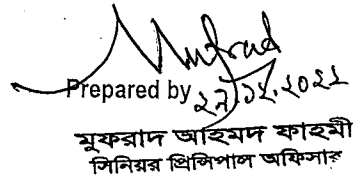 Mufrad
Prepared by ২৭.১২.২০২২
মুফরাদ আহমদ ফাহমী
সিনিয়র প্রিন্সিপাল অফিসার